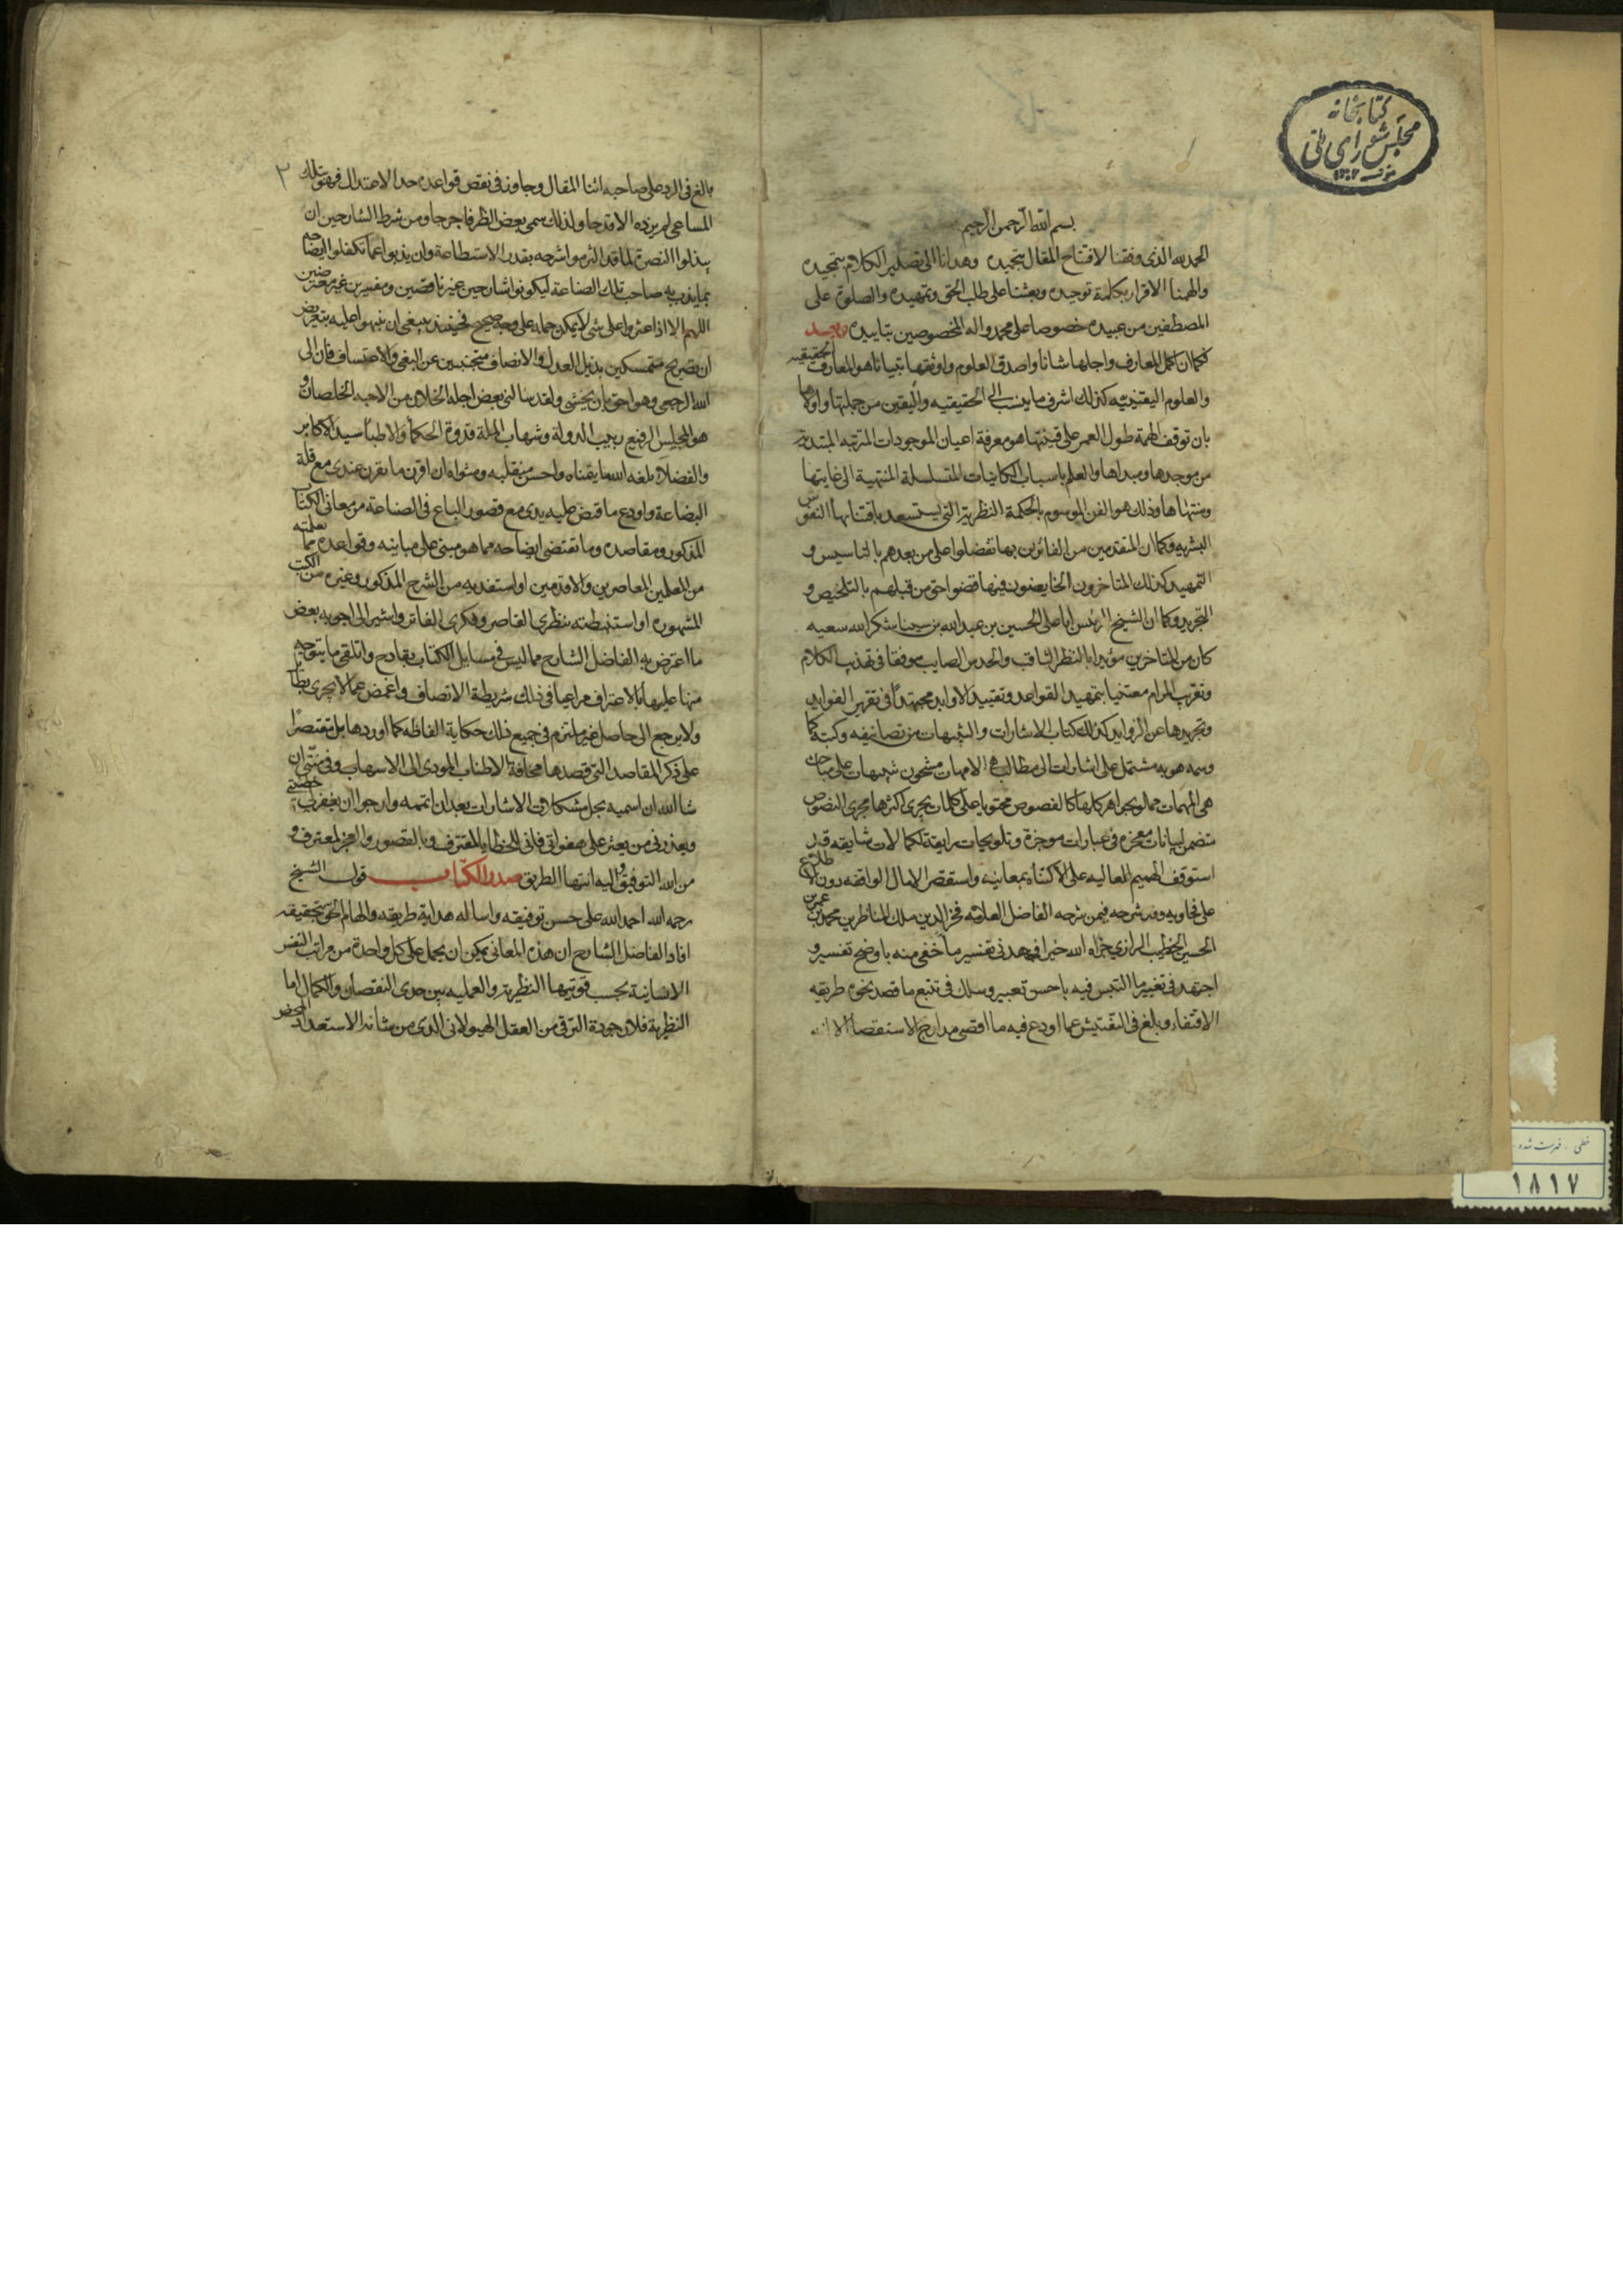 كتابخانه
مجلس شورای ملی
بسم الله الرحمن الرحيم
الحمد لله الذى وفقنا لافتتاح المقال بتحميده وهدانا الى تصدير الكلام بتمجيده
والهمنا الاقرار بكلمة توحيده وبعثنا على طلب الحق وتمهيده والصلوة على
المصطفين من عبيده خصوصا على محمد واله المخصوصين بتاييده وبعد
فكما ان اكمل المعارف واجلها شانا واصدق العلوم واوثقها تبيانا هو المعارف الحقيقيه
والعلوم اليقينيه كذلك اشرف ما ينسب الى الحقيقيه واليقين من جملتها واولاها
بان توقف الهمة طول العمر على قنيتها هو معرفة اعيان الموجودات المترتبه المبتديه
من موجدها ومبداها والعلم باسباب الكاينات المتسلسلة المنتهية الى غايتها
ومنتهاها وذلك هو الفن الموسوم بالحكمة النظرية التى يستسعد باقتنايها النفوس
البشريه وكما ان المتقدمين من الفائزين بها تفضلوا على من بعدهم بالتاسيس و
التمهيد كذلك المتاخرون الخايضون فيها قضوا حق من قبلهم بالتلخيص و
التجريد وكما ان الشيخ الرئيس ابا على الحسين بن عبد الله بن سينا شكر الله سعيه
كان من المتاخرين مؤيدا بالنظر الثاقب والحدس الصايب موفقا فى تهذيب الكلام
وتقريب المرام معتنيا بتمهيد القواعد وتقييد الاوابد مجتهدا فى تقرير الفوايد
وتجريدها عن الزوايد كذلك كتاب الاشارات والتنبيهات من تصانيفه وكتبه كما
وسمه هو به مشتمل على اشارات الى مطالب هى الامهات مشحون بتنبيهات على مباحث
هى المهمات مملو بجواهر كلها كالفصوص محتويا على كلمات يجرى اكثرها مجرى النصوص
متضمن لبيانات معجزه فى عبارات موجزة وتلويحات رايقة لكمالات شايقه قد
استوقف الهمم العاليه على الاكتناه بمعانيه واستقصر الامال الواقفه دون الاطلاع
على فحاويه وقد شرحه فيمن شرحه الفاضل العلامه فخر الدين ملك المناظرين محمد بن عمر بن
الحسين الخطيب الرازي جزاه الله خيرا فجهد فى تفسير ما خفى منه باوضح تفسير و
اجتهد فى تعبير ما التبس فيه باحسن تعبير وسلك فى تتبع ما قصد نحوه طريقه
الاقتفاء وبلغ فى التفتيش عما اودع فيه ما اقصى مدارج الاستقصا الا انه
٢
بالغ فى الرد على صاحبه اثنا المقال وجاوز فى نقض قواعده حد الاعتدال فهو بتلك
المساعى لم يزده الا قدحا ولذلك سمى بعض الظرفا جرحا ومن شرط الشارحين ان
يبذلوا النصرة لما قد التزموا شرحه بقدر الاستطاعة وان يذبوا عما تكفلوا ايضاحه
بما يذب به صاحب تلك الصناعة ليكونوا شارحين غير ناقضين ومفسرين غير معترضين
اللهم الا اذا عثروا على شى لا يمكن حمله على وجه صحيح فحينئذ ينبغى ان ينبهوا عليه بتعريض
او تصريح متمسكين بذيل العدل والانصاف متجنبين عن البغى والاعتساف فان الى
الله الرجعى وهو احق بان يخشى ولقد سالنى بعض اجلة الخلان من الاحبه الخلصان و
هو المجلس الرفيع ربيب الدولة وشهاب الملة قدوة الحكما والاطبا سيد الاكابر
والفضلا بلغه الله ما يتمناه واحسن منقلبه ومثواه ان اقرن ما تقرر عندى مع قلة
البضاعة واودع ما قبض عليه يدى مع قصور الباع فى الصناعة من معانى الكتاب
المذكور ومقاصده وما تقتضى ايضاحه مما هو مبنى على مبانيه وقواعده مما تعلمته
من المعلمين المعاصرين والاقدمين او استفدته من الشرح المذكور وغيره من الكتب
المشهوره او استنبطته بنظرى القاصر وفكرى الفاتر واشير الى اجوبه بعض
ما اعترض به الفاضل الشارح مما ليس فى مسايل الكتاب بقادح واتلقى ما يتوجه
منها عليها بالاعتراف مراعيا فى ذلك شريطة الانصاف واغمض عما لا يجدى بطايل
ولا يرجع الى حاصل غير ملتزم فى جميع ذلك حكاية الفاظه كما اوردها بل مقتصرا
على ذكر المقاصد التى قصدها مخافة الاطناب المودى الى الاسهاب وفى نيتى ان
شا الله ان اسميه بحل مشكلات الاشارات بعد ان اتممه وارجوا ان يغفر لى خطيئتى
ويعذرنى من يعثر على هفواتى فانى للخطايا لمقترف وبالقصور والعجز لمعترف و
من الله التوفيق واليه انتها الطريق صدر الكتاب قول الشيخ
رحمه الله احمد الله على حسن توفيقه واساله هداية طريقه والهام الحق بتحقيقه
افاد الفاضل الشارح ان هذه المعانى يمكن ان يحمل على كل واحدة من مراتب النفس
الانسانية بحسب قوتيها النظرية والعمليه بين حدى النقصان والكمال اما
النظرية فلان جودة الترقى من العقل الهيولانى الذى من شانه الاستعداد المحض
خطی . فهرست شده
١٨١٧